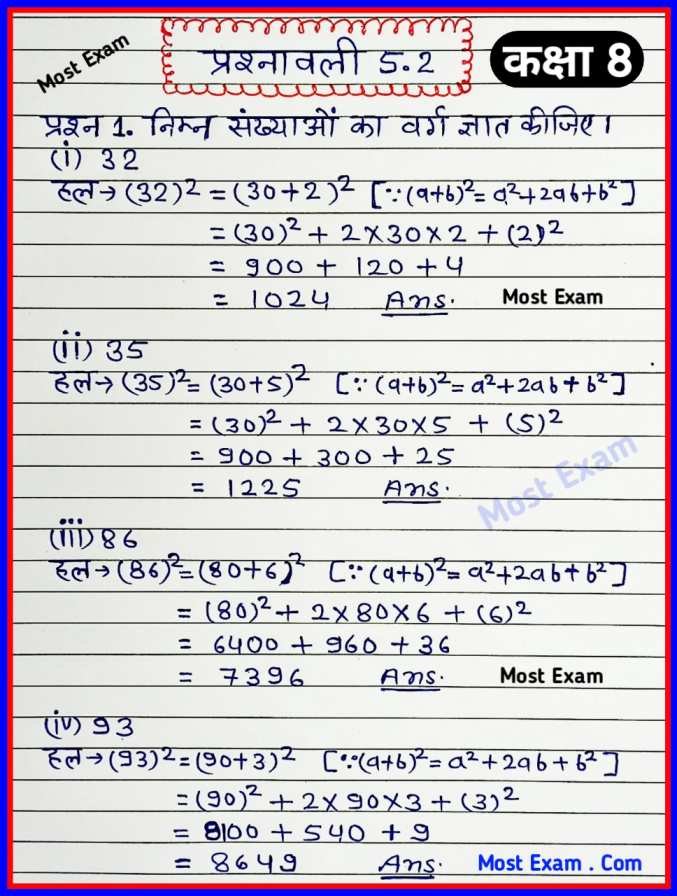 Most Exam
प्रश्नावली 5.2
कक्षा 8
प्रश्न 1. निम्न संख्याओं का वर्ग ज्ञात कीजिए।
(i) 32
हल → (32)² = (30+2)² [∵ (a+b)² = a²+2ab+b²]
= (30)² + 2×30×2 + (2)²
= 900 + 120 + 4
= 1024 Ans. Most Exam
(ii) 35
हल → (35)² = (30+5)² [∵ (a+b)² = a²+2ab+b²]
= (30)² + 2×30×5 + (5)²
= 900 + 300 + 25
= 1225 Ans.
Most Exam
(iii) 86
हल → (86)² = (80+6)² [∵ (a+b)² = a²+2ab+b²]
= (80)² + 2×80×6 + (6)²
= 6400 + 960 + 36
= 7396 Ans. Most Exam
(iv) 93
हल → (93)² = (90+3)² [∵ (a+b)² = a²+2ab+b²]
= (90)² + 2×90×3 + (3)²
= 8100 + 540 + 9
= 8649 Ans. Most Exam . Com